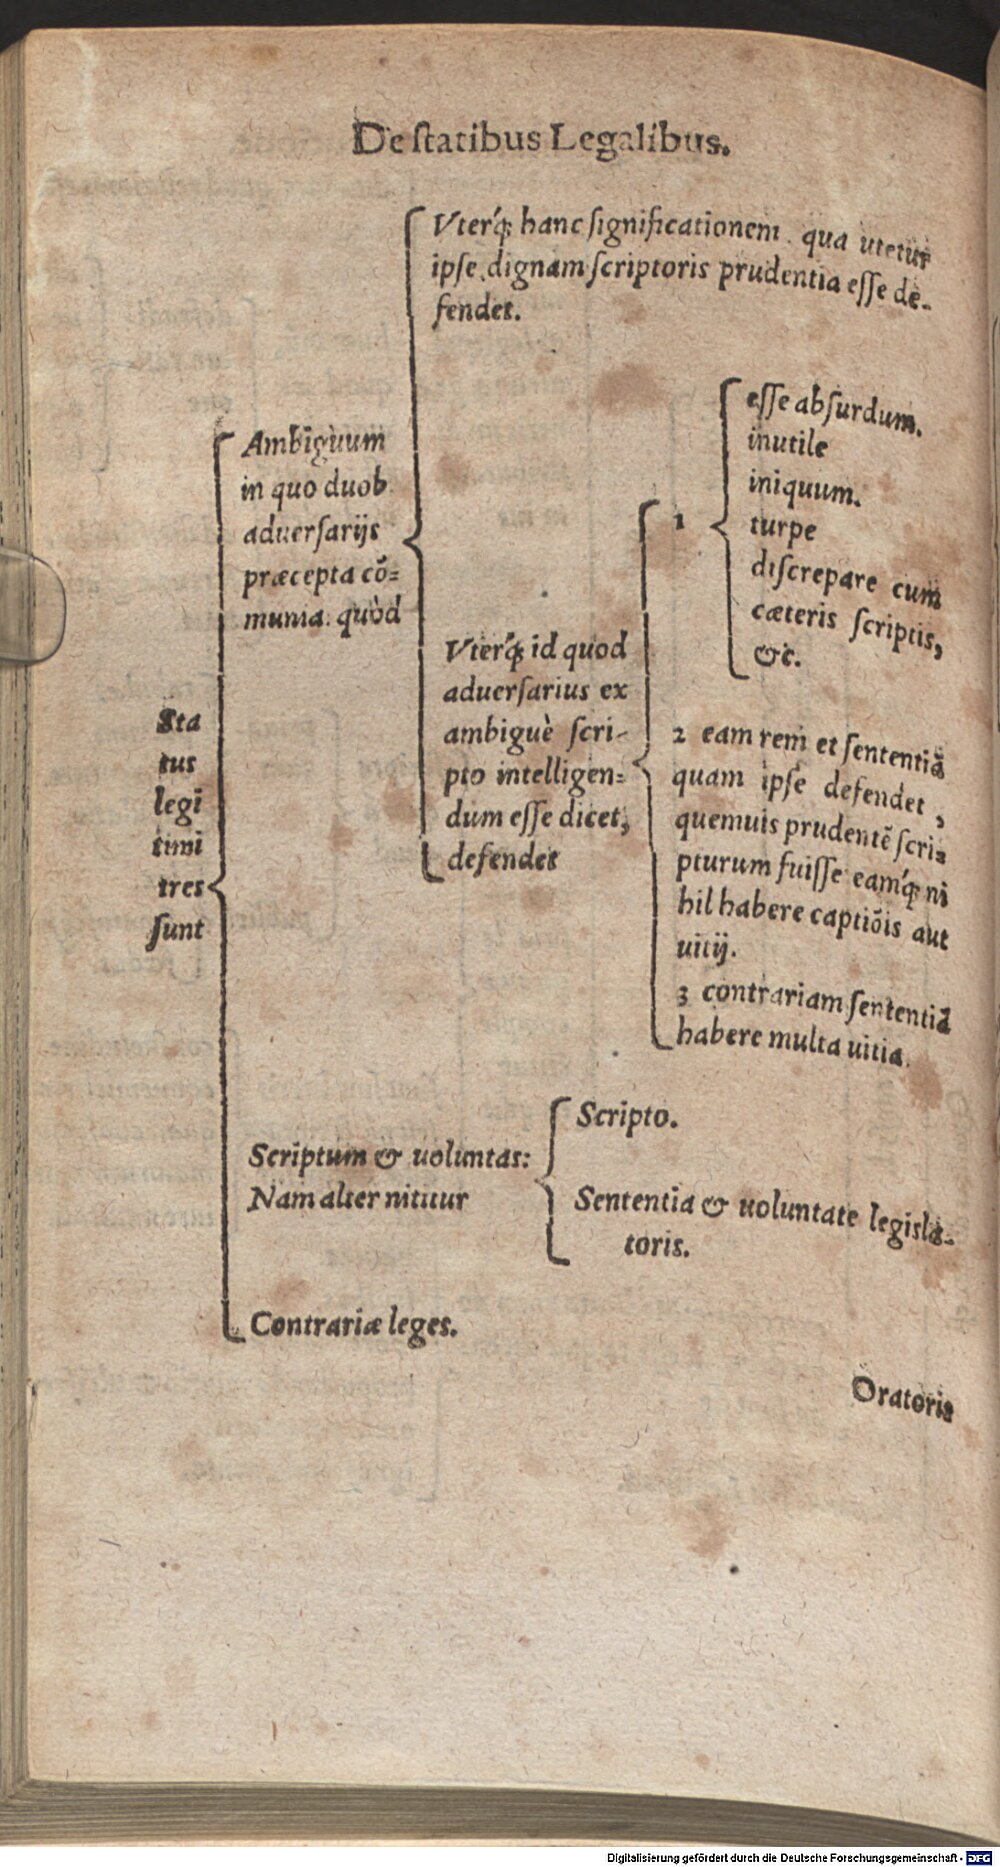 De statibus Legalibus.
Sta
tus
legi
timi
tres
sunt
Ambiguum
in quo duob.
aduersarijs
præcepta cō=
munia: quòd
Vterq́; hanc significationem qua utetur
ipse dignam scriptoris prudentia esse de-
fendet.
Vterq́; id quod
aduersarius ex
ambiguè scri-
pto intelligen=
dum esse dicet,
defendet
1
esse absurdum.
inutile
iniquum.
turpe
discrepare cum
cæteris scriptis,
&c.
2 eam rem et sententiā
quam ipse defendet,
quemuis prudentē scri=
pturum fuisse eamq́; ni
hil habere captiōis aut
uitij.
3 contrariam sententiā
habere multa uitia.
Scriptum & uoluntas:
Nam alter nititur
Scripto.
Sententia & uoluntate legisla-
toris.
Contrariæ leges.
Oratoria
Digitalisierung gefördert durch die Deutsche Forschungsgemeinschaft - DFG